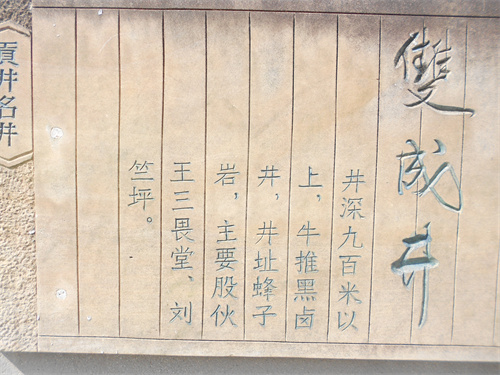 雙成井
井深九百米以
上，牛推黑卤
井，井址蜂子
岩，主要股伙
王三畏堂、刘
竺坪。
貢井名井